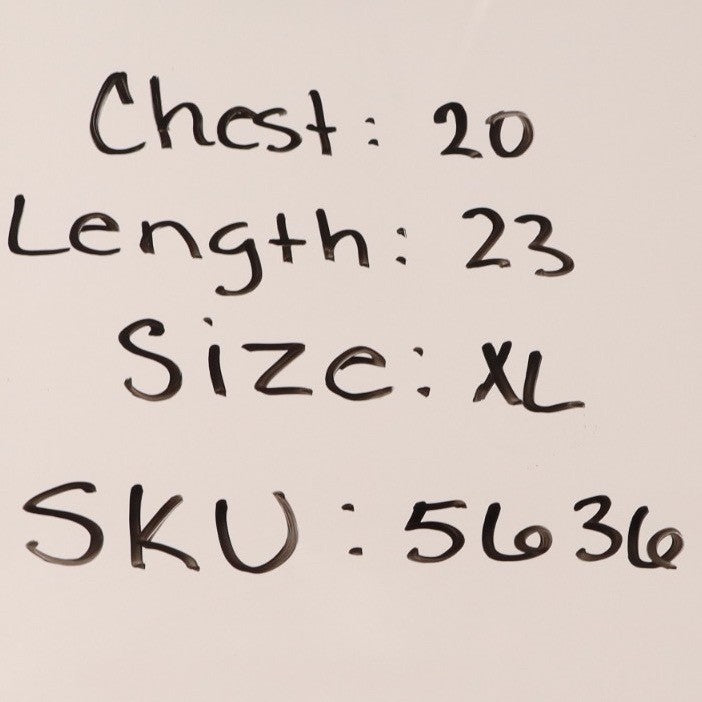 Chest: 20
Length: 23
Size: XL
SKU: 5636